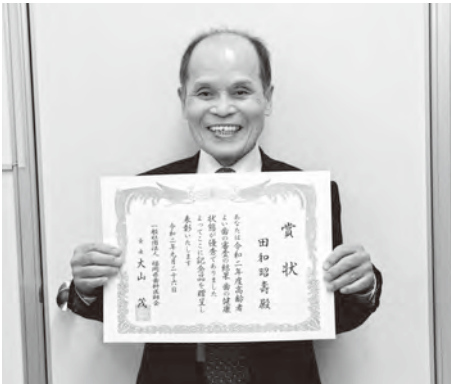 賞状
田和昭壽殿
あなたは令和二年度高齢者
よい歯の審査の結果歯の健康
状態が優秀でありました
よってここに記念品を贈呈し
表彰いたします
令和二年九月二十六日
一般社団法人 福岡県歯科医師会
会長 大山 茂